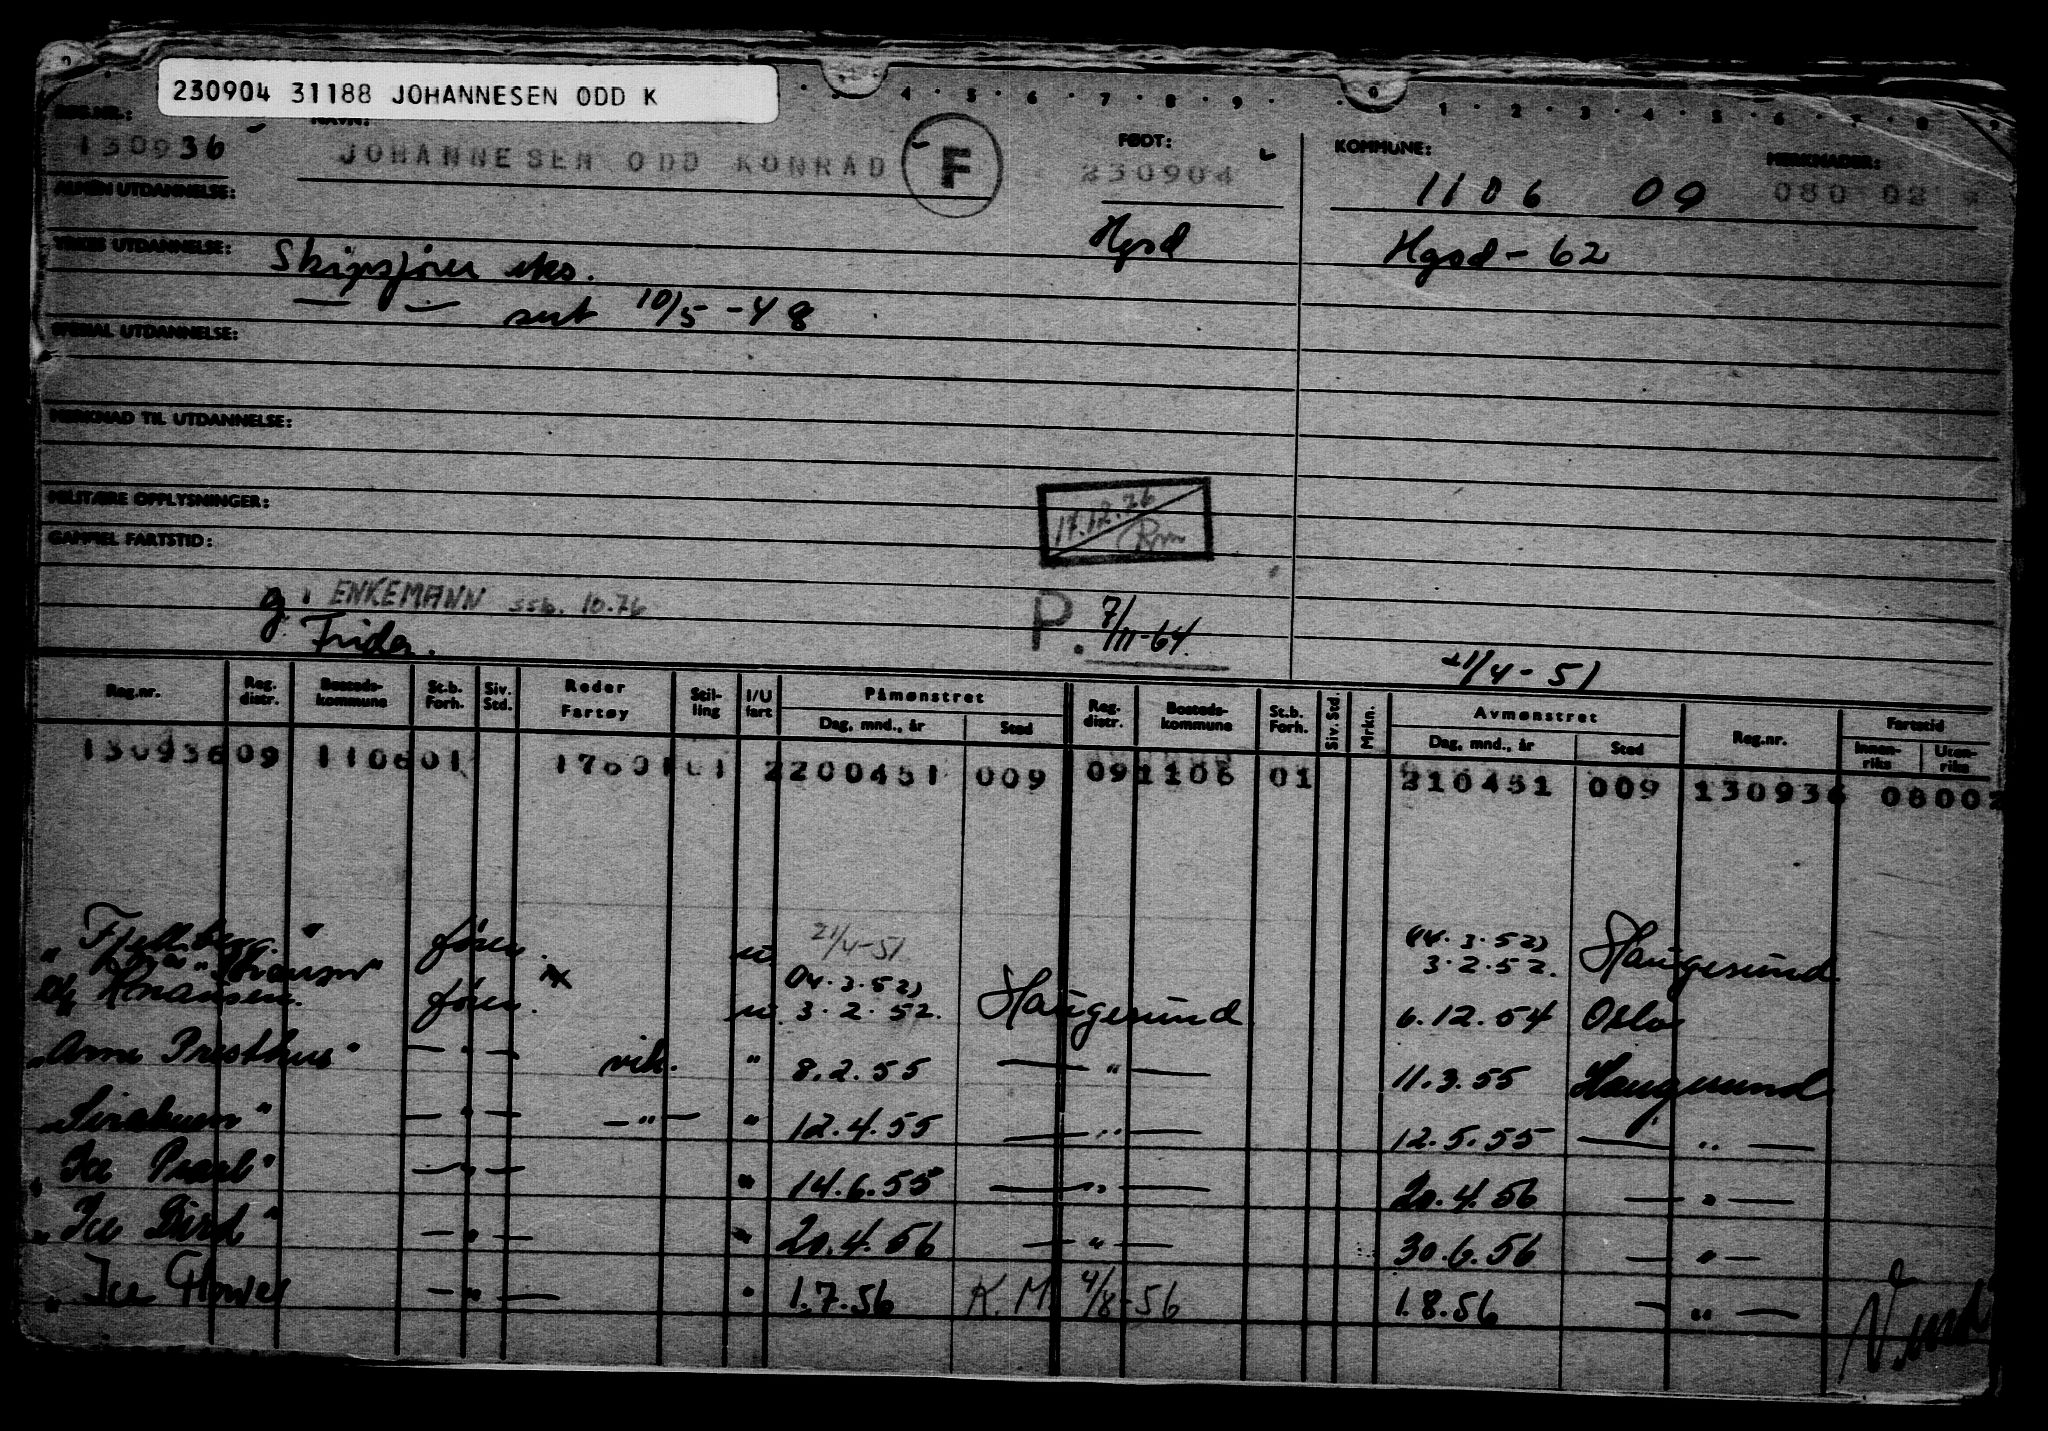 230904 31188 JOHANNESEN ODD K
130936 JOHANNESEN ODD KONRAD F FØDT: 230904 KOMMUNE: 1106 09 MERKNADER: 080 02
ALMEN UTDANNELSE:
YRKES UTDANNELSE: Skipsfører eks. Hgsd Hgsd - 62
— " — sert 10/5 - 48
SPESIAL UTDANNELSE:
MERKNAD TIL UTDANNELSE:
MILITÆRE OPPLYSNINGER: 17.12.76
GAMMEL FARTSTID:
g. ENKEMANN ssb. 10.76 P. 7/III-64
Frida. 21/4 - 51
Reg.nr. Reg. distr. Bosteds-kommune St.b. Forh. Siv. Std. Reder Fartøy Stil-ling I/U fart Påmønstret Dag, mnd., år Sted Reg. distr. Bosteds-kommune St.b. Forh. Siv. Std. Mrkn. Avmønstret Dag, mnd., år Sted Reg.nr. Fartstid Innen-riks Uten-riks
130936 09 1106 01 1760 101 2 200451 009 09 1106 01 210451 009 130936 08002
" Fjellberg. " fører. u. 21/4-51 (14.3.52) 3.2.52. Haugesund
fører. u. (14.3.52) 3.2.52. Haugesund 6.12.54 Oslo
" Arne Presthus " — " — vik. " 8.2.55 — " — 11.3.55 Haugesund
" Sirahum " — " — — " — " 12.4.55 — " — 12.5.55 — " —
" Ice Pearl " — " — " 14.6.55 — " — 20.4.56 — " —
" Ice Bird " — " — " 20.4.56 — " — 30.6.56 — " —
" Ice Flower — " — " 1.7.56 K.M. 4/8-56 1.8.56 — " —